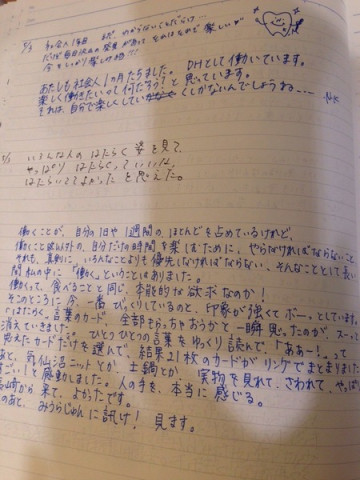 5/3 社会人1年目 まだ わからないことだらけ…
だけど毎日沢山の発見があって なかなかで楽しいが
今をしっかり楽しむ!!!
DHとして働いています。
あたしも社会人1ヵ月たちました。
楽しく働きたいって何だろう?と思っています。
それは、自分で楽しくしていくしかないんでしょうね…
5/3 いろんな人の はたらく姿を見て、
やっぱり はたらくっていいな、
はたらいててよかった と思えた。
働くことが、自分の1日や1週間の、ほとんどを占めているけれど、
働くこと以外の、自分だけの時間を楽しむために、やらなければならないこと
それも、真剣に、いろんなことよりも優先しなければならない、そんなこととして長い
間私の中に「働く」ということはありました。
働くって、食べることと同じ、本能的な欲求なのか!
そこのところに今一番びっくりしているのと、印象が強くてボーっとしています。
「はたらく」言葉のカード、全部もらっちゃおうかと一瞬思ったのが、スーっと
消えていきました。ひとつひとつの言葉をゆっくり読んで「ああー!」って
思えたカードだけを選んで、結果21枚のカードがリングでまとまりました
あと、気仙沼ニットとか、土鍋とか、実物を見れて、さわれて、やっぱ
すごい!と感動しました。人の手を、本当に感じる。
から来て、よかったです。
このあと、みうらじゅんに訊け! 見ます。